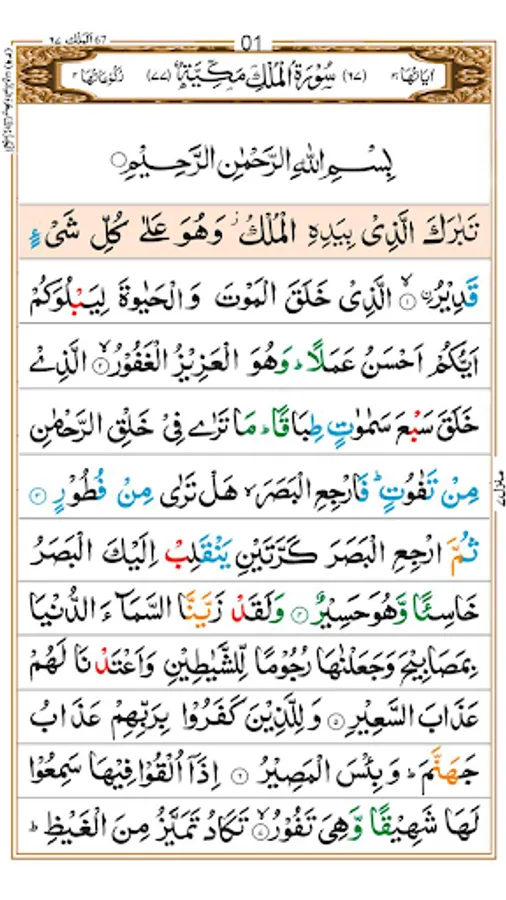 ٦٧ اَلْمُلْك 67
01
اٰيَاتُهَا ٣٠ (٦٧) سُوْرَةُ الْمُلْكِ مَكِّيَّةٌ (٧٧) رُكُوْعَاتُهَا ٢
بِسْمِ اللّٰهِ الرَّحْمٰنِ الرَّحِيْمِ
تَبٰرَكَ الَّذِيْ بِيَدِهِ الْمُلْكُ ۡ وَهُوَ عَلٰى كُلِّ شَيْءٍ
قَدِيْرُ ۨ ۙ﴿١﴾ الَّذِيْ خَلَقَ الْمَوْتَ وَالْحَيٰوةَ لِيَبْلُوَكُمْ
اَيُّكُمْ اَحْسَنُ عَمَلًا ؕ وَهُوَ الْعَزِيْزُ الْغَفُوْرُ ۙ﴿٢﴾ الَّذِيْ
خَلَقَ سَبْعَ سَمٰوٰتٍ طِبَاقًا ؕ مَا تَرٰى فِيْ خَلْقِ الرَّحْمٰنِ
مِنْ تَفٰوُتٍ ؕ فَارْجِعِ الْبَصَرَ ۙ هَلْ تَرٰى مِنْ فُطُوْرٍ ﴿٣﴾
ثُمَّ ارْجِعِ الْبَصَرَ كَرَّتَيْنِ يَنْقَلِبْ اِلَيْكَ الْبَصَرُ
خَاسِئًا وَّهُوَ حَسِيْرٌ ﴿٤﴾ وَلَقَدْ زَيَّنَّا السَّمَآءَ الدُّنْيَا
بِمَصَابِيْحَ وَجَعَلْنٰهَا رُجُوْمًا لِّلشَّيٰطِيْنِ وَاَعْتَدْنَا لَهُمْ
عَذَابَ السَّعِيْرِ ﴿٥﴾ وَلِلَّذِيْنَ كَفَرُوْا بِرَبِّهِمْ عَذَابُ
جَهَنَّمَ ؕ وَبِئْسَ الْمَصِيْرُ ﴿٦﴾ اِذَاۤ اُلْقُوْا فِيْهَا سَمِعُوْا
لَهَا شَهِيْقًا وَّهِيَ تَفُوْرُ ۙ﴿٧﴾ تَكَادُ تَمَيَّزُ مِنَ الْغَيْظِ ؕ